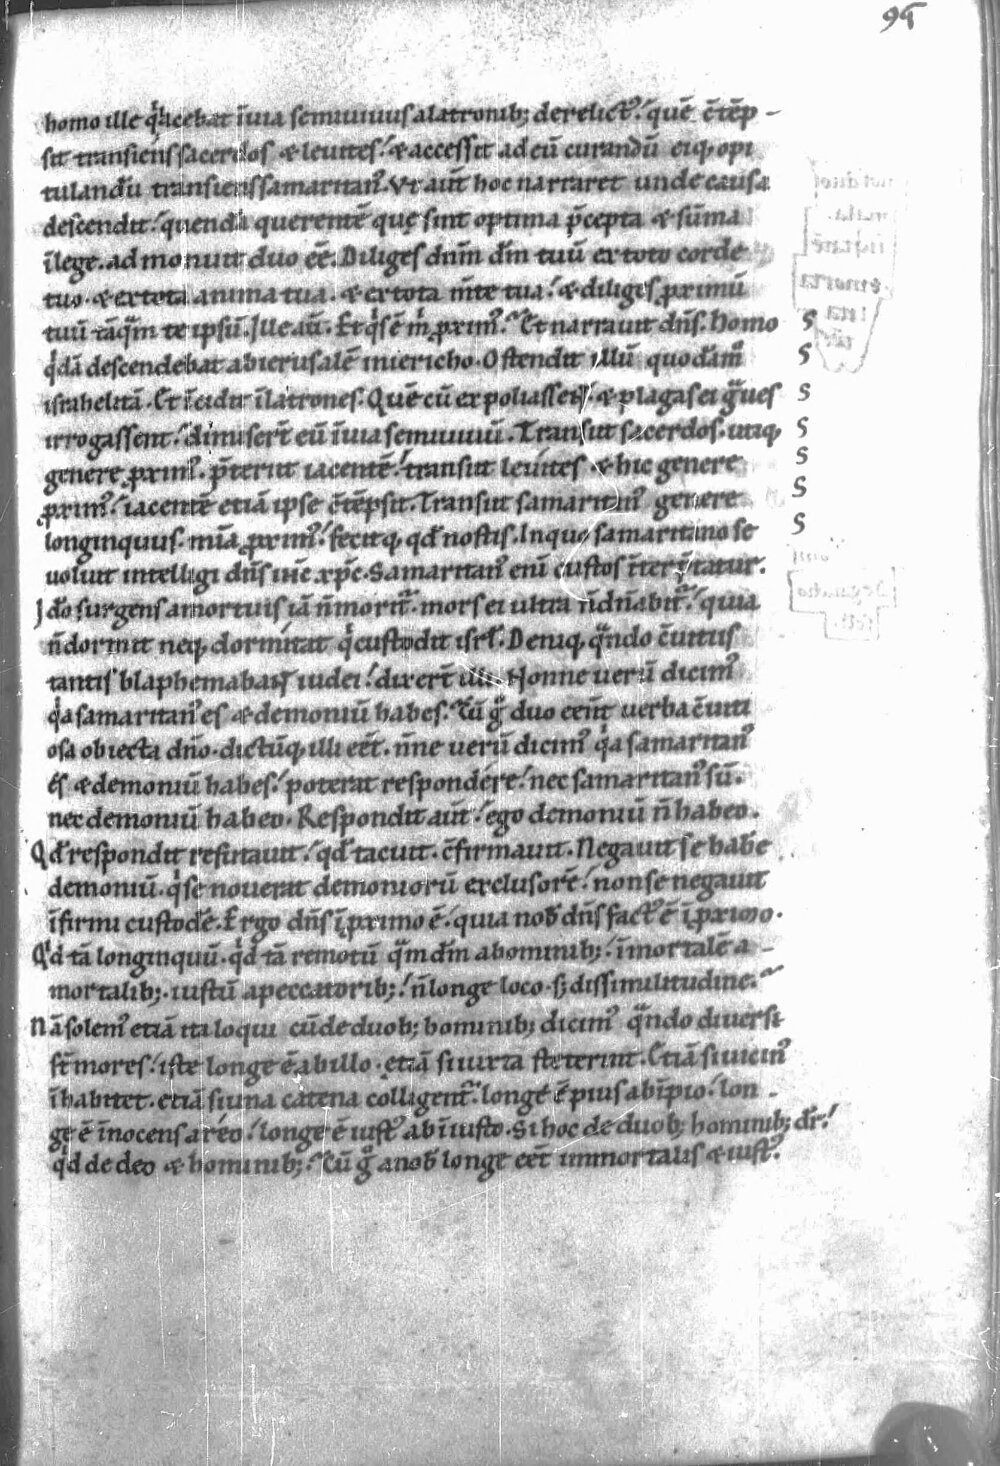 95
homo ille q̇ iacebat ĩ uia semiuiuus a latronib; derelict᷒. quẽ c̃tẽp-
sit transiens sacerdos & leuites. & accessit ad eũ curandũ eiq; opi
tulandũ transiens samaritan᷒. Vt aũt hoc narraret unde causa
descendit. quendã querentẽ quę sint optima p̃cepta & sũma
ĩ lege. admonuit duo eẽ. Diliges dnm̃ dm̃ tuũ ex toto corde
tuo. & ex tota anima tua. & ex tota m̃te tua. & diliges ꝓximũ
tuũ tãq̃m te ipsũ. Ille aũ. Et q̇s ẽ m̃ ꝓxim᷒. Et narrauit dñs. Homo
q̇dã descendebat ab ierusalẽ in iericho. Ostendit illũ quodãm̃
israhelitã. Et ĩcidit ĩ latrones. Quẽ cũ expoliassent & plagas ei g̃ues
irrogassent. dimisert̃ eũ ĩ uia semiuiuũ. Transiit sacerdos. utiq;
genere ꝓxim᷒. p̃teriit iacentẽ. transiit leuites & hic genere
ꝓxim᷒. iacentẽ etiã ipse c̃tẽpsit. Transiit samaritan᷒ genere
longinquus. mĩa ꝓxim᷒. fecitq; qd̃ nostis. In quo samaritano se
uoluit intelligi dñs iħc xp̃c. Samaritan᷒ eni custos ĩterp̃tatur.
Ido surgens a mortuis iã ñ morit̃. mors ei ultra ñ dñabit̃. quia
ñ dormit neq; dormitat q̇ custodit isrł. Deniq; q̃ndo c̃uitiis
tantis blaphemabant iudei. dixert̃ illi. Nonne uerũ dicim᷒
q̇a samaritan᷒ es & demoniũ habes. Cũ g̃ duo eent̃ uerba c̃uiti
osa obiecta dño. dictũq; illi eet̃. ñne uerũ dicim᷒ q̇a samaritan᷒
es & demoniũ habes. poterat respondere. nec samaritan᷒ sũ.
nec demoniũ habeo. Respondit aũt. ego demoniũ ñ habeo.
Qd̃ respondit refutauit. qd̃ tacuit. c̃firmauit. Negauit se habe
demoniũ. q̇ se nouerat demoniorũ exclusorẽ. non se negauit
ĩfirmi custodẽ. Ergo dñs ĩ ꝓximo ẽ. quia nob̃ dñs fact᷒ ẽ ĩ ꝓximo.
Q̇d tã longinquũ. q̇d tã remotũ q̃m dm̃ ab ominib;. ĩmortalẽ a-
mortalib;. iustũ a peccatorib;. ñ longe loco. s; dissimilitudine.
Nã solem᷒ etiã ita loqui cũ de duob; hominib; dicim᷒ q̃ndo diuersi
st̃ mores. iste longe ẽ ab illo. etiã si iuxta steterint. Etiã si uicin᷒
ĩhabitet. etiã si una catena colligent̃. longe ẽ pius ab ĩpio. lon-
ge ẽ ĩnocens a reo. longe ẽ iust᷒ ab ĩiusto. Si hoc de duob; hominib; dr̃.
q̇d de deo & hominib;. Cũ g̃ a nob̃ longe eet̃ immortalis & iust᷒.
S
S
S
S
S
S
S